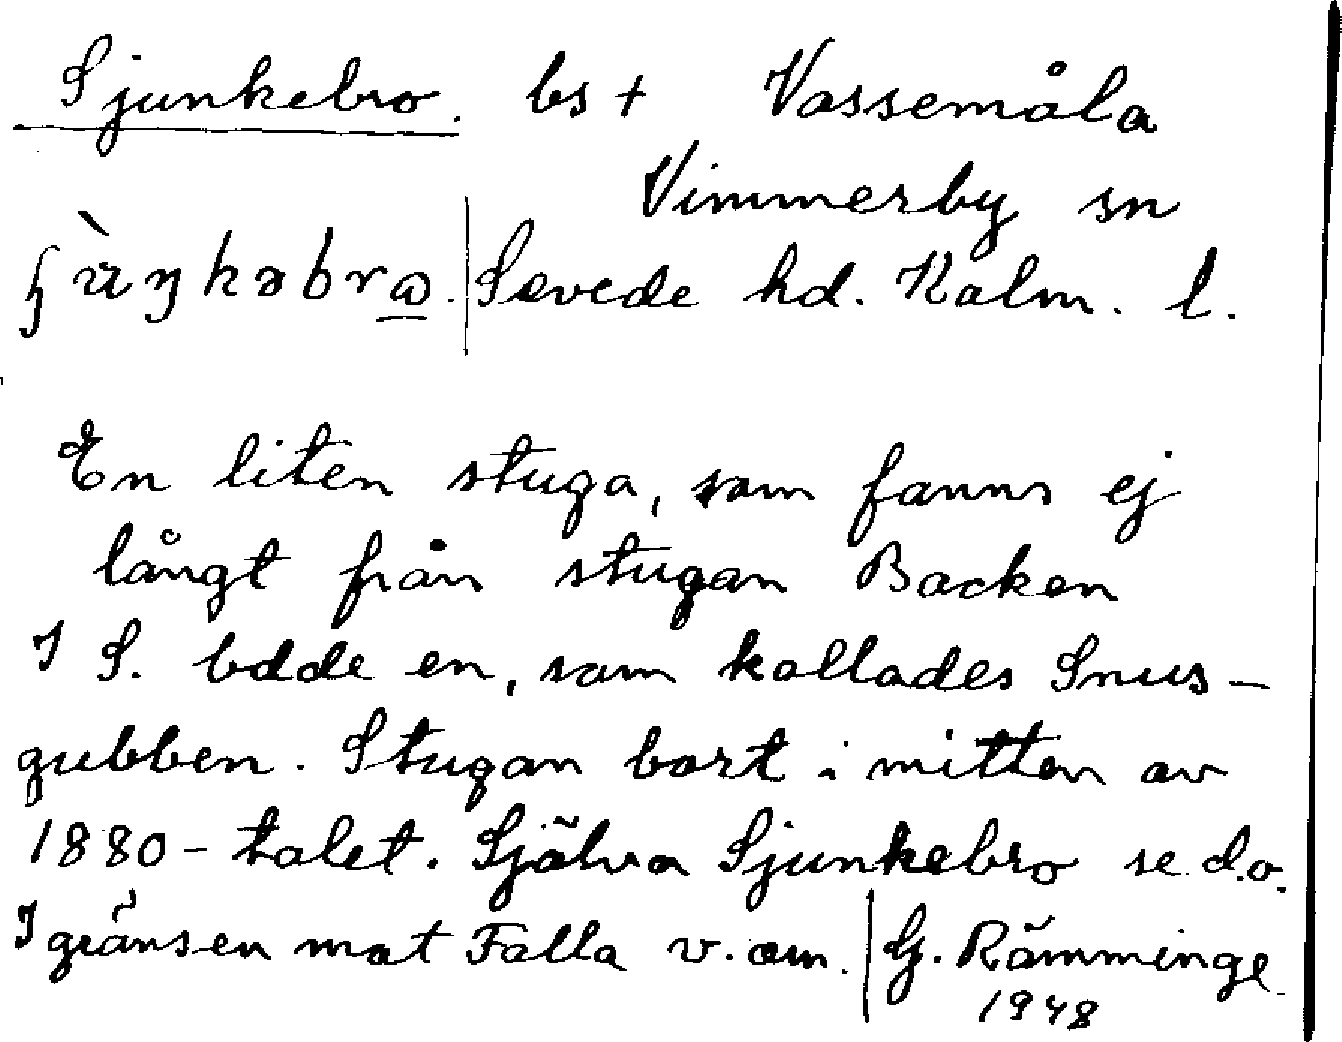 Sjunkebro. bs + Vassemåla
Vimmerby sn
Sevede hd. Kalm. l.
En liten stuga, som fanns ej
långt från stugan Backen
I S. bodde en, som kallades Snus-
gubben. Stugan bort i mitten av
1880-talet. Själva Sjunkebro se d.o.
I gränsen mot Falla v. om. G. Rämminge
1948